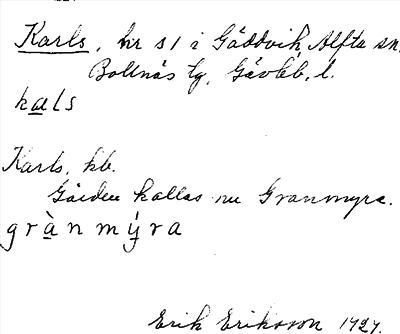 Karls, hr s1 i Gäddvik, Alfta sn,
Bollnäs tg, Gävleb. l.
kals
Karls, kb.
Gården kallas nu Granmyra.
grànmýra
Erik Eriksson 1927.